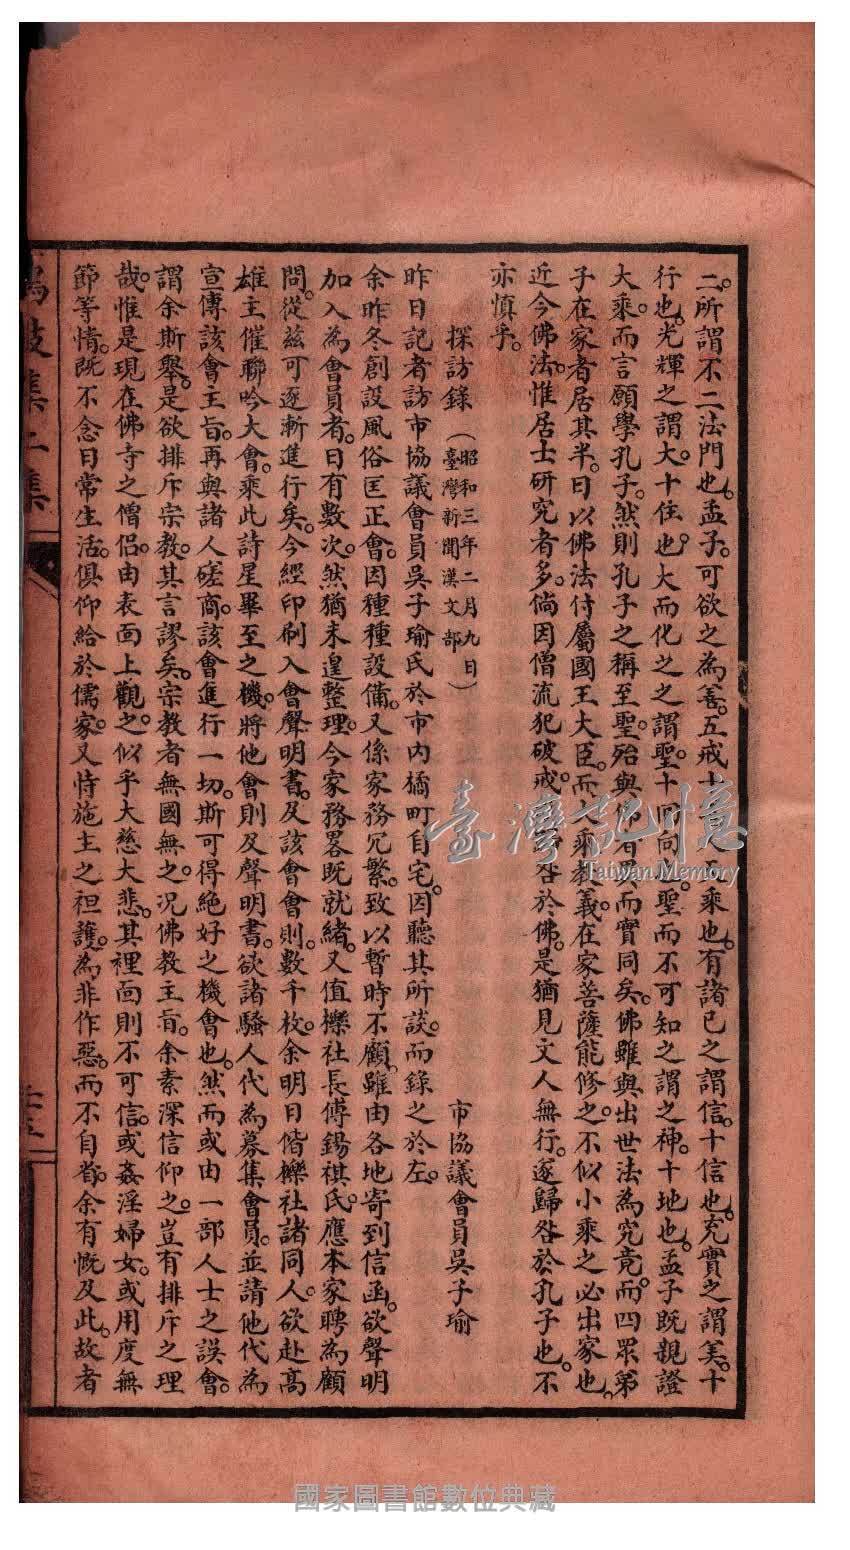 二。所謂不二法門也。孟子。可欲之為善。五戒十 乘也。有諸已之謂信。十信也。充實之謂美。十
行也。光輝之謂大。十住也。大而化之之謂聖。十回向 聖而不可知之謂之神。十地也。孟子既親證
大乘。而言願學孔子。然則孔子之稱至聖。殆與佛有異而實同矣。佛雖與出世法為究竟。而四眾弟
子在家者居其半。曰以佛法付屬國王大臣。而大乘教義。在家菩薩能修之。不似小乘之必出家也。
近今佛法。惟居士研究者多。倘因僧流犯破戒。 咎於佛。是猶見文人無行。遂歸咎於孔子也。不
亦慎乎。
探訪錄(昭和三年二月九日)(臺灣新聞漢文部) 市協議會員吳子瑜
昨日記者訪市協議會員吳子瑜氏於市內橘町自宅。因聽其所談。而錄之於左。
余昨冬創設風俗匡正會。因種種設備。又係家務冗繁。致以暫時不顧。雖由各地寄到信函。欲聲明
加入為會員者。日有數次。然猶未遑整理。今家務畧既就緒。又值櫟社長傅錫祺氏。應本家聘為顧
問。從茲可逐漸進行矣。今經印刷入會聲明書。及該會會則。數千枚。余明日偕櫟社諸同人。欲赴高
雄主催聯吟大會。乘此詩星畢至之機。將他會則及聲明書。欲諸騷人代為募集會員。並請他代為
宣傳該會主旨。再與諸人磋商。該會進行一切。斯可得絕好之機會也。然而或由一部人士之誤會。
謂余斯舉。是欲排斥宗教。其言謬矣。宗教者無國無之。况佛教主旨。余素深信仰之。豈有排斥之理
哉。惟是現在佛寺之僧侶。由表面上觀之。似乎大慈大悲。其裡面則不可信。或姦淫婦女。或用度無
節等情。既不念日常生活。俱仰給於儒家。又恃施主之袒護。為非作惡。而不自省。余有慨及此。故者
鼓集二集
臺灣記憶
Taiwan Memory
國家圖書館數位典藏